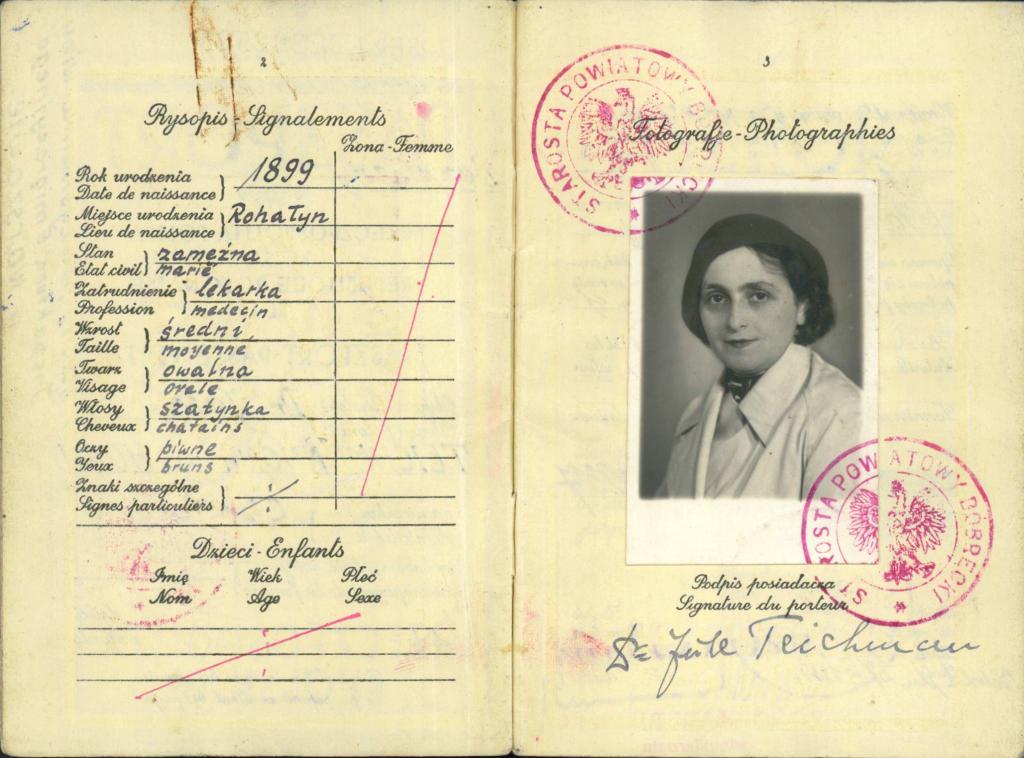 2
Rysopis - Signalements
Żona - Femme
Rok urodzenia
Date de naissance
1899
Miejsce urodzenia
Lieu de naissance
Rohatyn
Stan
Etat civil
zamężna
marié
Zatrudnienie
Profession
lekarka
medecin
Wzrost
Taille
średni
moyenne
Twarz
Visage
owalna
ovale
Włosy
Cheveux
szatynka
chatains
Oczy
Yeux
piwne
bruns
Znaki szczególne
Signes particuliers
Dzieci - Enfants
Imię Wiek Płeć
Nom Age Sexe
3
STAROSTA POWIATOWY BÓBRECKI
Fotografje - Photographies
STAROSTA POWIATOWY BÓBRECKI
Podpis posiadacza
Signature du porteur
Dr Teichman